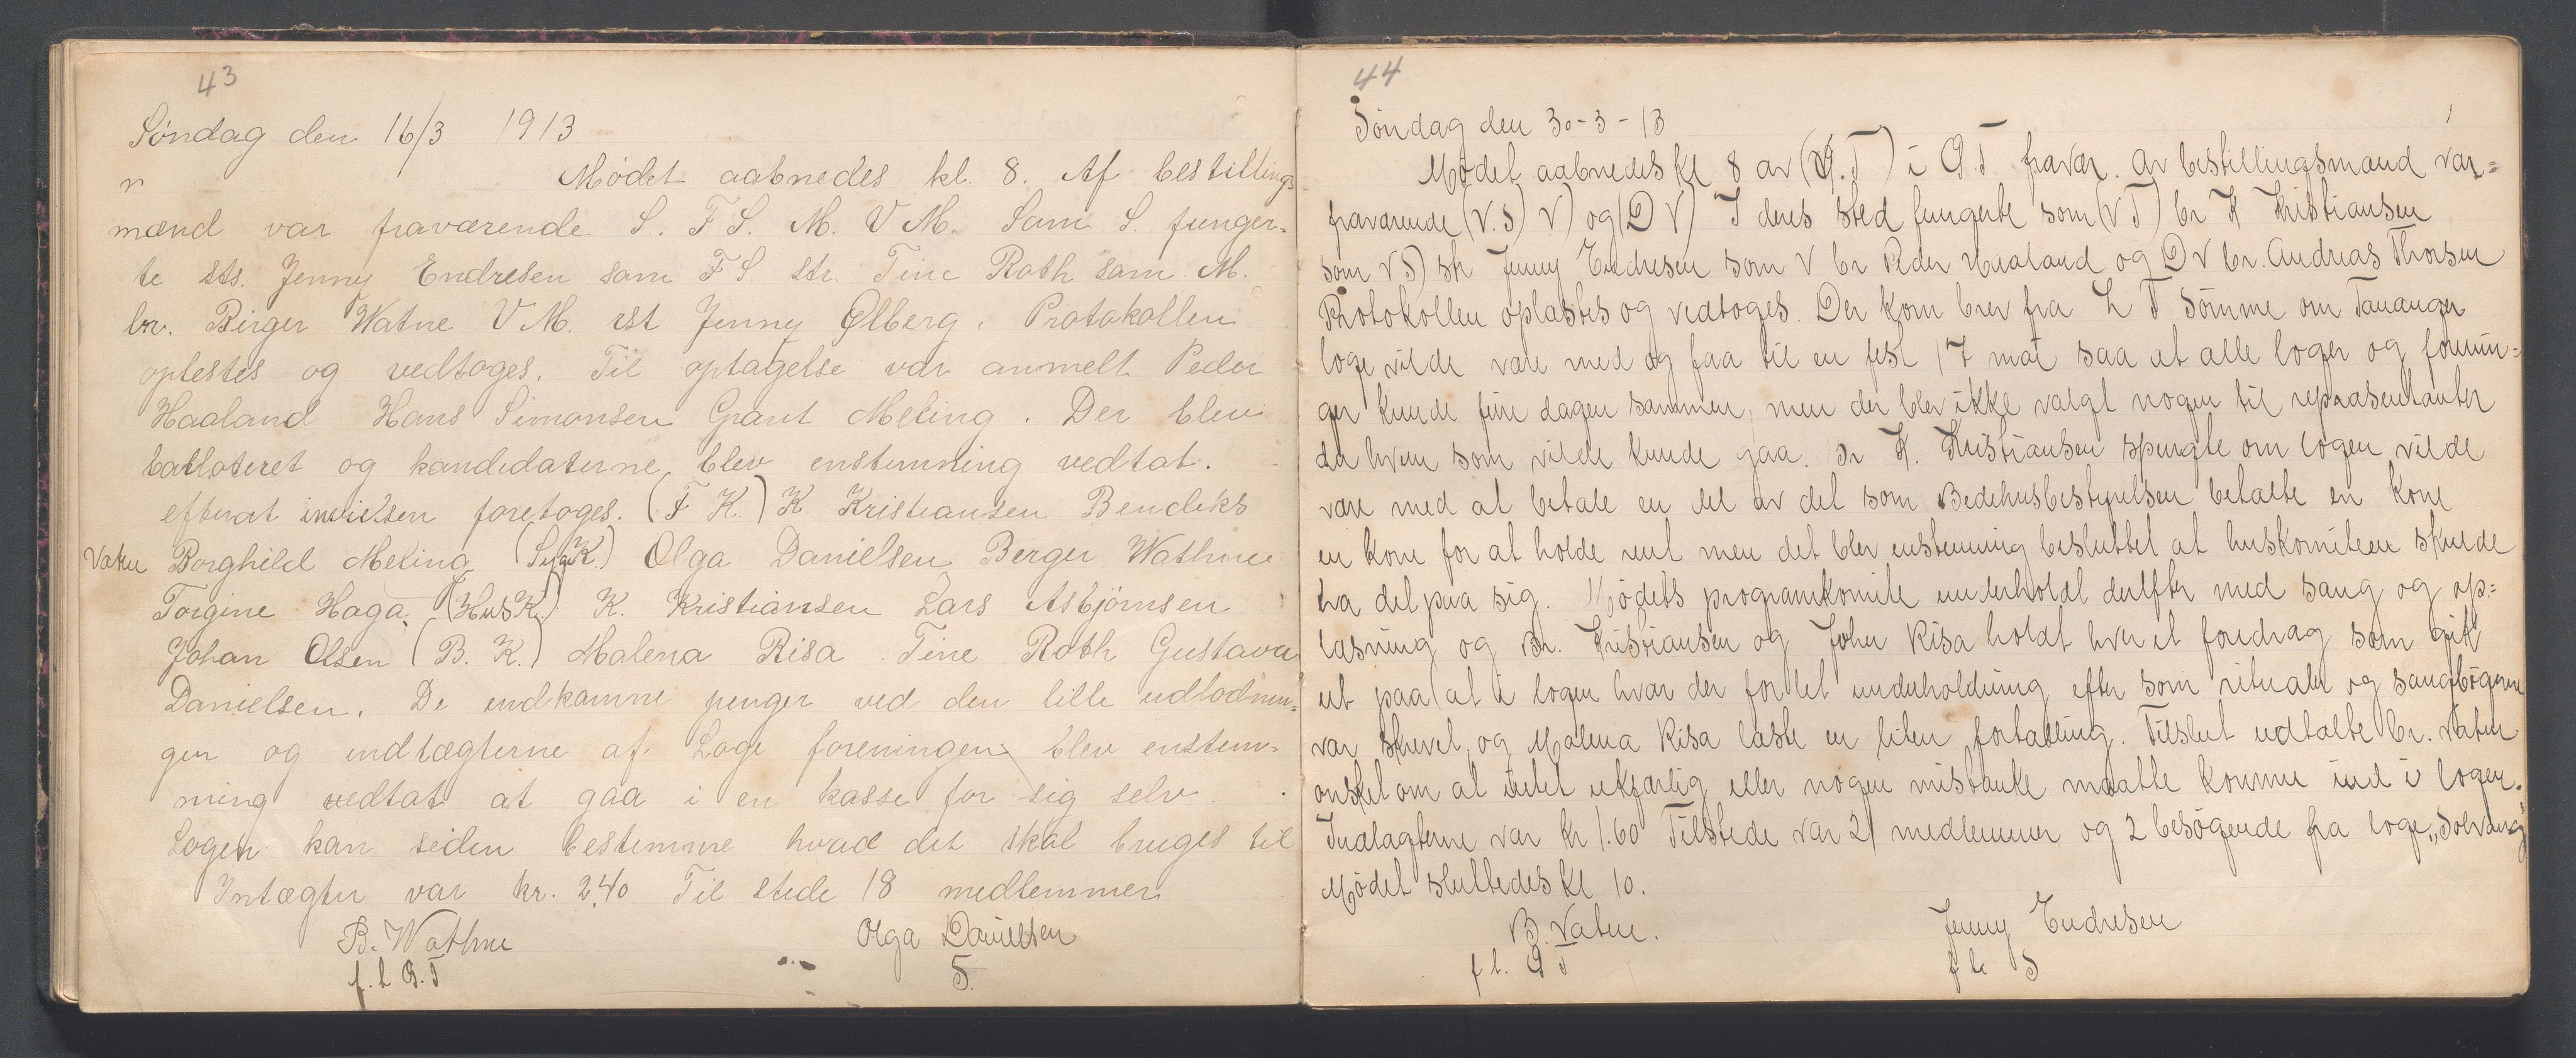 43
Søndag den 16/3 1913
Mødet aabnedes kl. 8. Af bestillings
mænd var fraværende S. F S. M. V M. Som S. funger-
te sts. Jenny Endresen som F S. str. Tine Roth som M.
br. Birger Watne V M. est Jenny Ølberg. Protokollen
oplestes og vedtoges. Til optagelse var anmelt Peder
Haaland Hans Simonsen Grant Meling. Der blev
balloteret og kandidaterne blev enstemning vedtat.
efterat invielsen foretoges. (F K.) K. Kristiansen Bendeks
Vatne Borghild Meling (Syge K.) Olga Danielsen Berger Wathne
Torgine Haga. (Hus K.) K. Kristiansen Lars Asbjørnsen
Johan Olsen (B. K.) Malena Risa. Tine Roth Gustava
Danielsen. De indkomne penger ved den lille udlodnin-
gen og indtægterne af Loge foreningen blev enstem-
ning vedtat at gaa i en kasse for sig selv.
Logen kan siden bestemme hvad det skal bruges til
Intægter var kr. 2,40 Til stede 18 medlemmer
B. Wathne Olga Danielsen
f. t Q. T S.
44
Søndag den 30-3-13
Mødet aabnedes kl 8 av (Q.T) i Q T fravær. Av bestillingsmænd var=
fraværende (V.S) V) og (D V) I deres sted fungerte som (V T) br K Kristiansen
som V S) str Jenny Endresen som V br Peder Haaland og D V br. Andreas Thorsen
Protokollen oplæstes og vedtoges. Der kom brev fra L T Sømme om Tananger
loge vilde være med og faa til en fest 17 mai saa at alle loger og forenin=
ger kunde feire dagen sammen, men der blev ikke valgt nogen til repræsentanter
da hvem som vilde kunde gaa. Br K. Kristiansen spurgte om logen vilde
være med at betale en del av det som Bedehusbestyrelsen betalte en kone
en kone for at holde rent men det blev enstemning besluttet at huskomiteen skulde
ta det paa sig. Mødets programkomite underholdt derefter med sang og op=
læsning og Br. Kristiansen og John Risa holdt hver et foredrag som gik
ut paa at i logen hvar der for let underholdning efter som ritualer og sangbøgerne
var skrevet, og Malena Risa læste en liten fortælling. Tilslut udtalte br. Vatne
ønsket om at intet ukjærlig eller nogen mistanke maatte komme ind i logen.
Indtægterne var kr 1.60 Tilstede var 21 medlemmer og 2 besøgende fra loge „Solvang"
Mødet sluttedes kl 10.
B. Vatne. Jenny Endresen
f t. Q T f t. S